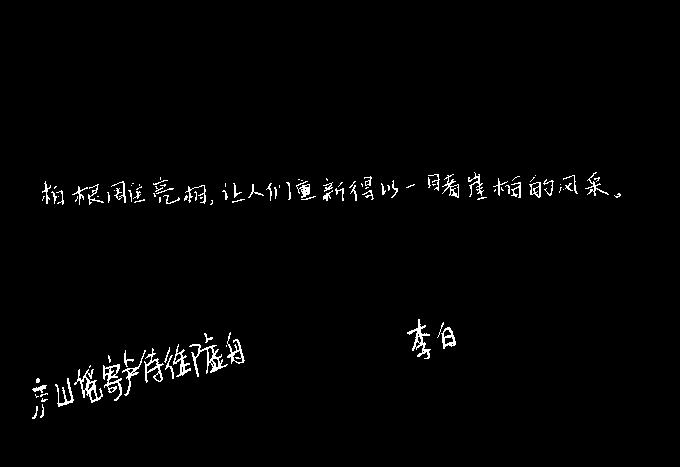 柏根雕亮相,让人们重新得以一睹崖柏的风采。
庐山谣寄卢侍御虚舟
李白